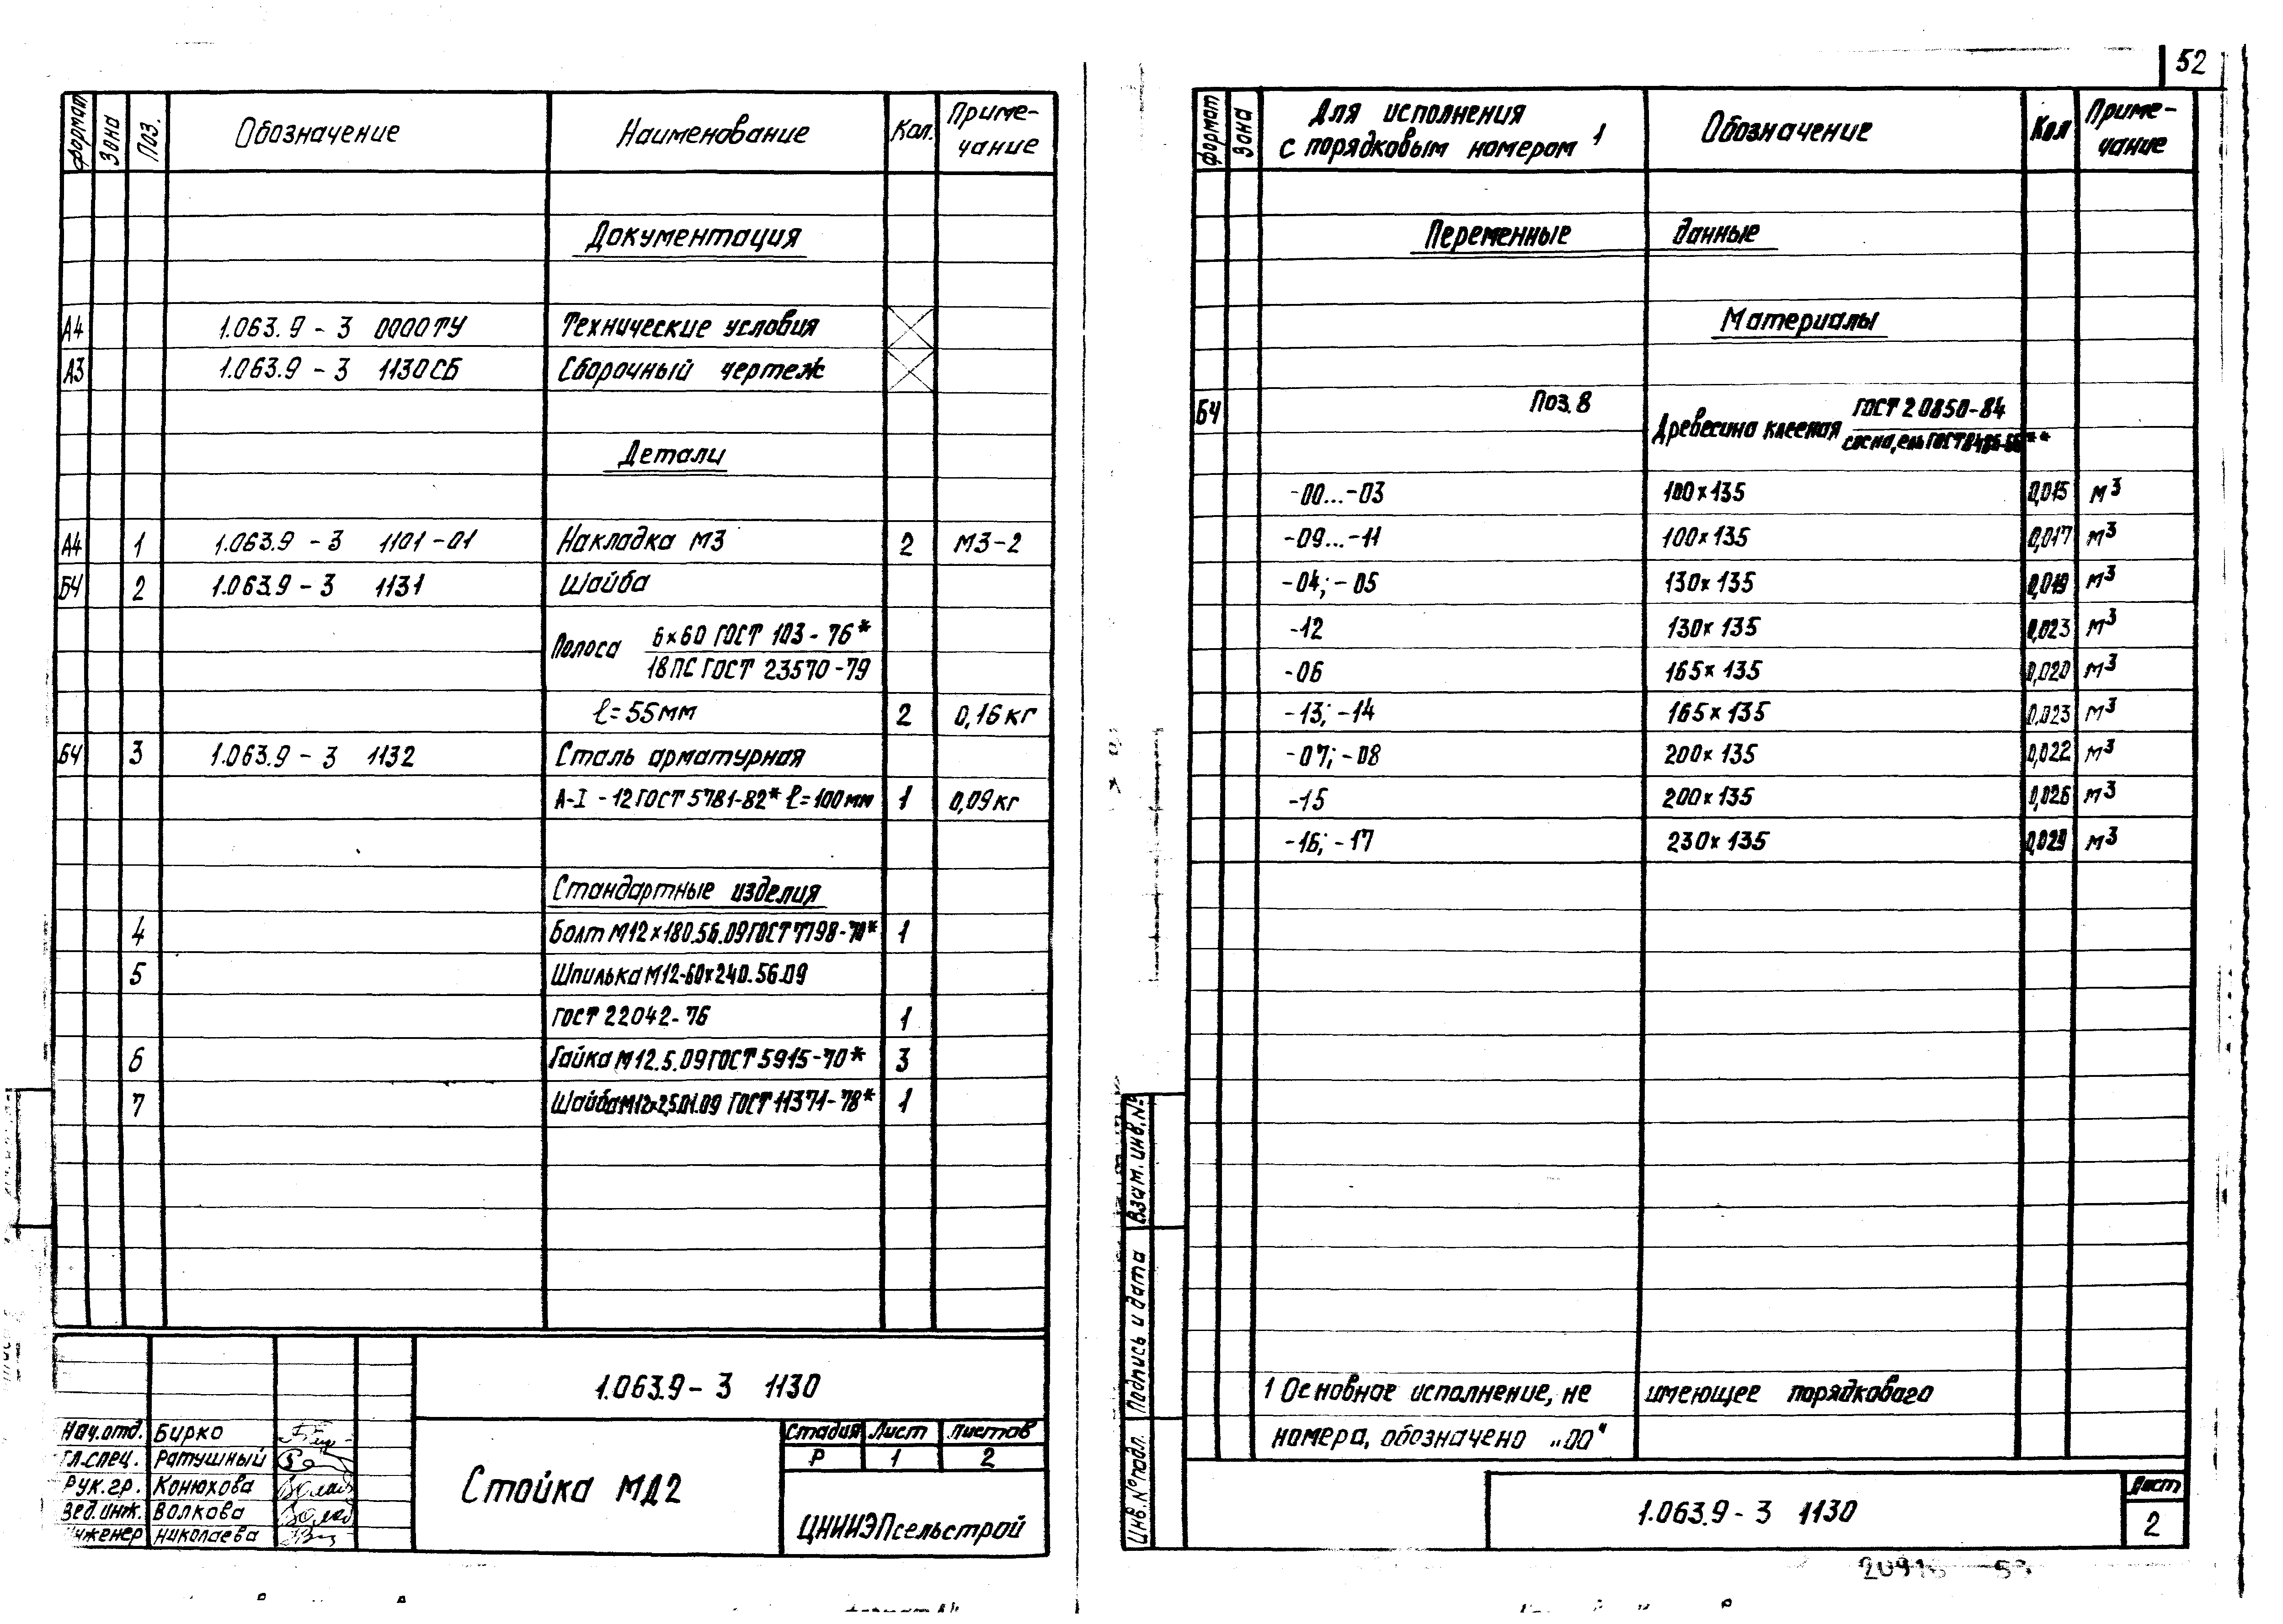 52
Формат Зона Поз. Обозначение Наименование Кол. Приме-
чание
Документация
А4 1.063.9 - 3 0000ТУ Технические условия
А3 1.063.9 - 3 1130СБ Сборочный чертеж
Детали
А4 1 1.063.9 - 3 1101 - 01 Накладка М3 2 М3-2
БЧ 2 1.063.9 - 3 1131 Шайба
Полоса 6×60 ГОСТ 103 - 76*
18ПС ГОСТ 23570 - 79
ℓ = 55мм 2 0,16кг
БЧ 3 1.063.9 - 3 1132 Сталь арматурная
А-I - 12 ГОСТ 5781-82* ℓ=100мм 1 0,09кг
Стандартные изделия
4 Болт М12×180.56.09 ГОСТ 7798-70* 1
5 Шпилька М12-60×240.56.09
ГОСТ 22042-76 1
6 Гайка М12.5.09 ГОСТ 5915-70* 3
7 Шайба ГОСТ 11371-78* 1
1.063.9 - 3 1130
Нач.отд. Бирко
Гл.спец. Ратушный
Рук.гр. Конюхова
Вед.инж. Волкова
Инженер Николаева
Стойка МД2
Стадия Лист Листов
Р 1 2
ЦНИИЭПсельстрой
Формат Зона Для исполнения
с порядковым номером 1 Обозначение Кол Приме-
чание
Переменные данные
Материалы
БЧ Поз. 8 Древесина клееная ГОСТ 20850-84
сосна, ель
-00...-03 100×135 0,015 м3
-09...-11 100×135 0,017 м3
-04; -05 130×135 0,019 м3
-12 130×135 0,023 м3
-06 165×135 0,020 м3
-13; -14 165×135 0,023 м3
-07; -08 200×135 0,022 м3
-15 200×135 0,026 м3
-16; -17 230×135 0,029 м3
1 Основное исполнение, не имеющее порядкового
номера, обозначено „00"
Инв.№подл. Подпись и дата Взам.инв.№
1.063.9 - 3 1130
Лист
2